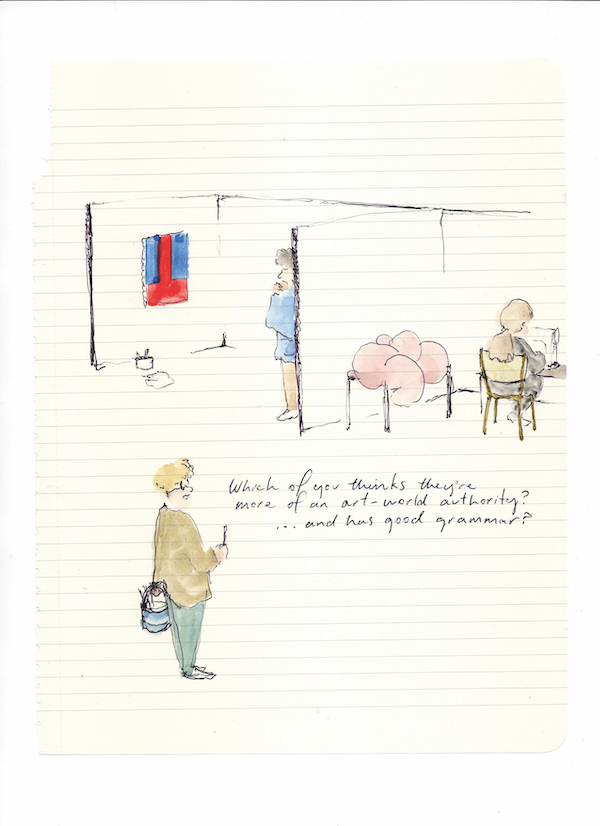 Which of you thinks they're
more of an art-world authority?
...and has good grammar?